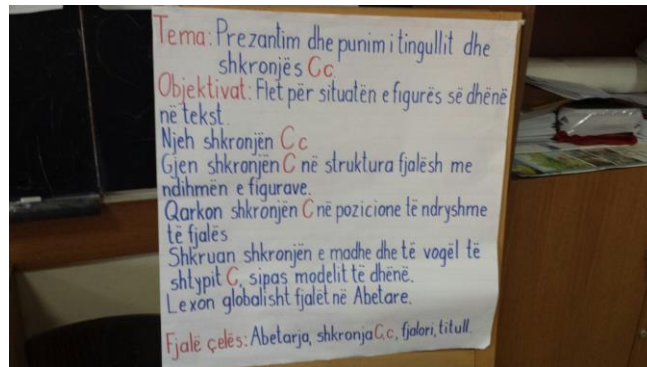 Tema: Prezantim dhe punim i tingullit dhe
shkronjës Cc.
Objektivat: Flet për situatën e figurës së dhënë
në tekst.
Njeh shkronjën Cc
Gjen shkronjën C në struktura fjalësh me
ndihmën e figurave.
Qarkon shkronjën C në pozicione të ndryshme
të fjalës
Shkruan shkronjën e madhe dhe të vogël të
shtypit C, sipas modelit të dhënë.
Lexon globalisht fjalët në Abetare.
Fjalë çelës: Abetarja, shkronja C,c, fjalori, titull.